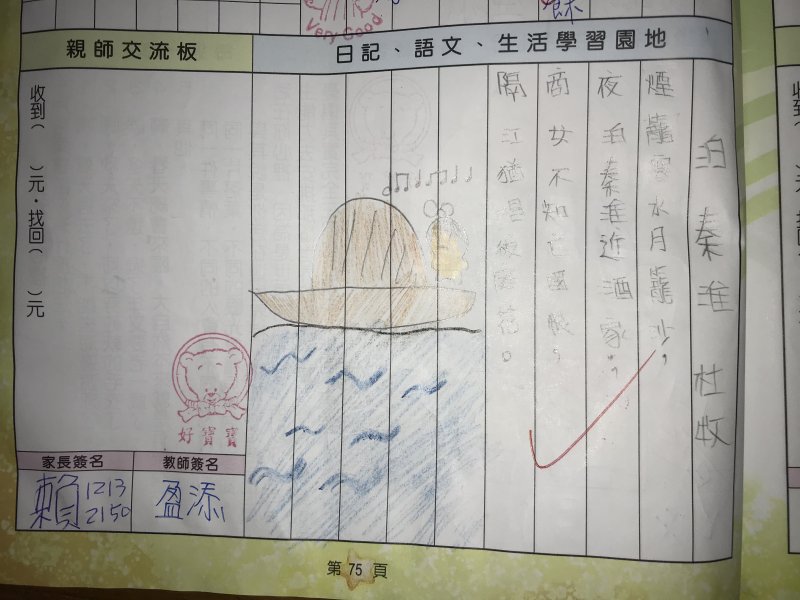 Very Good
親師交流板
日記、語文、生活學習園地
泊秦淮 杜牧
煙籠寒水月籠沙，
夜泊秦淮近酒家。
商女不知亡國恨，
隔江猶唱後庭花。
收到（ ）元．找回（ ）元
好寶寶
家長簽名
教師簽名
賴 1213
2150
盈添
第 75 頁
收到（